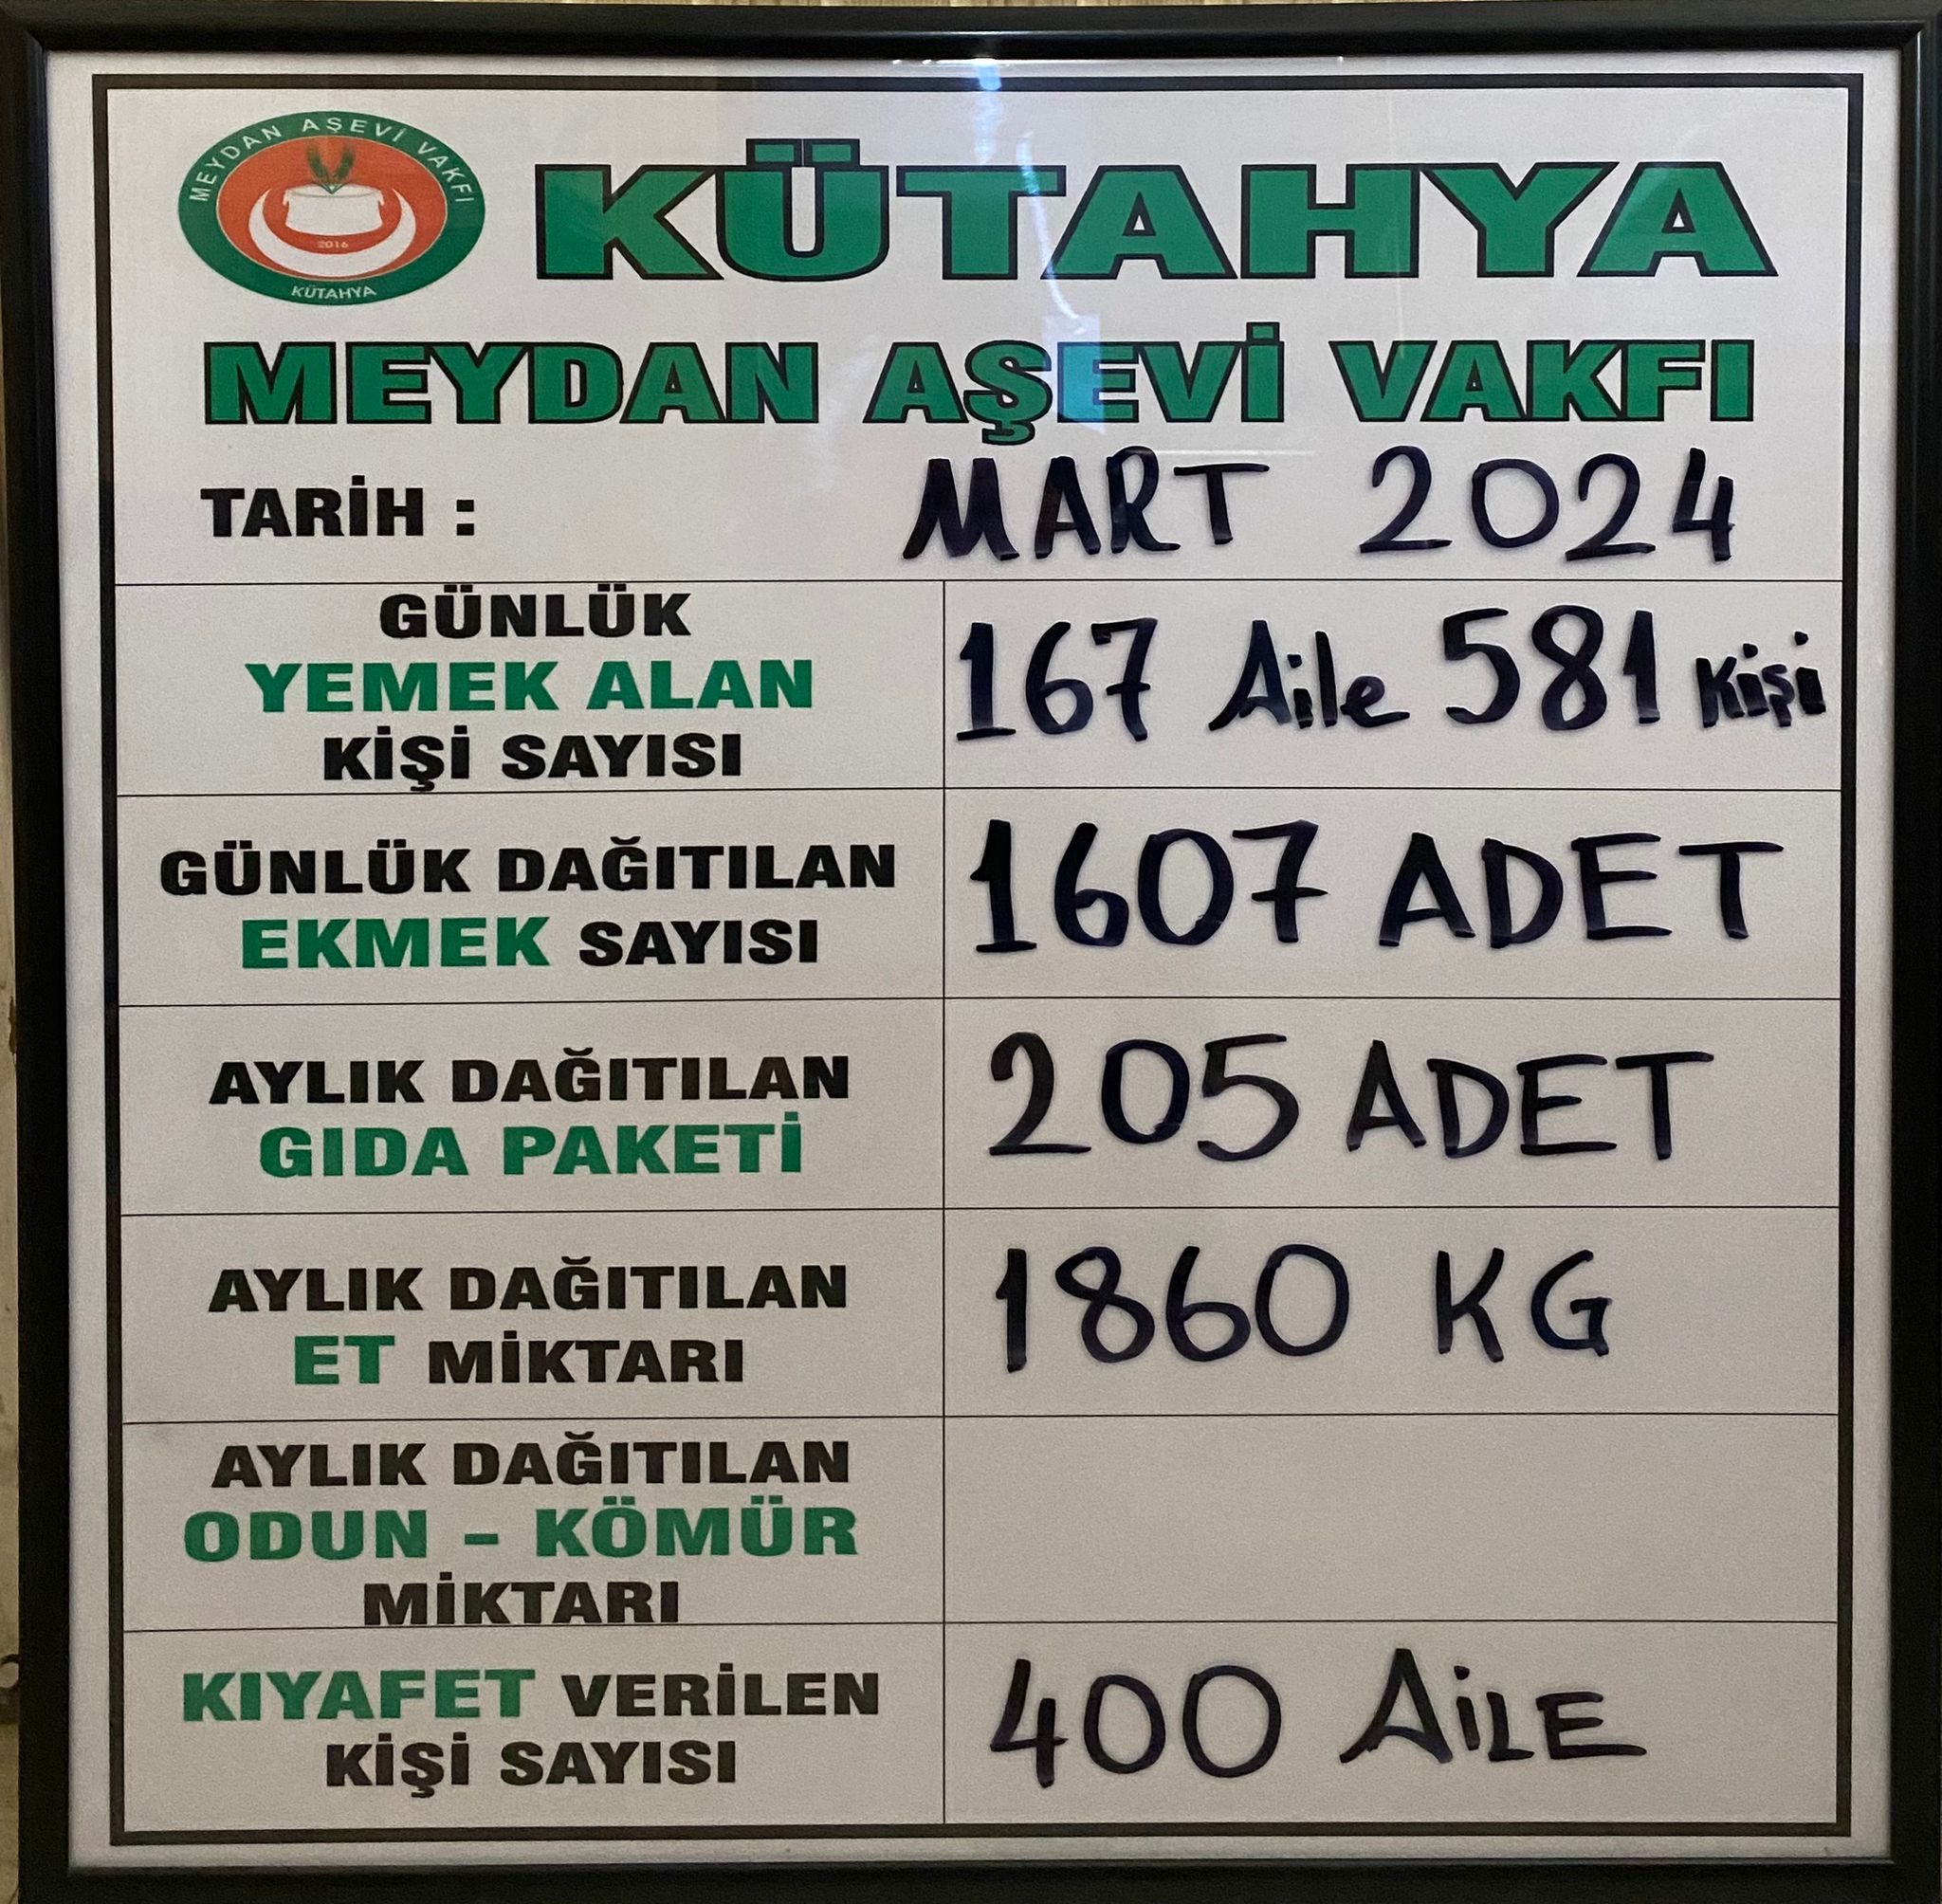 MEYDAN AŞEVİ VAKFI
2016
KÜTAHYA
KÜTAHYA
MEYDAN AŞEVİ VAKFI
TARİH : MART 2024
GÜNLÜK
YEMEK ALAN
KİŞİ SAYISI
167 Aile 581 Kişi
GÜNLÜK DAĞITILAN
EKMEK SAYISI
1607 ADET
AYLIK DAĞITILAN
GIDA PAKETİ
205 ADET
AYLIK DAĞITILAN
ET MİKTARI
1860 KG
AYLIK DAĞITILAN
ODUN - KÖMÜR
MİKTARI
KIYAFET VERİLEN
KİŞİ SAYISI
400 AİLE